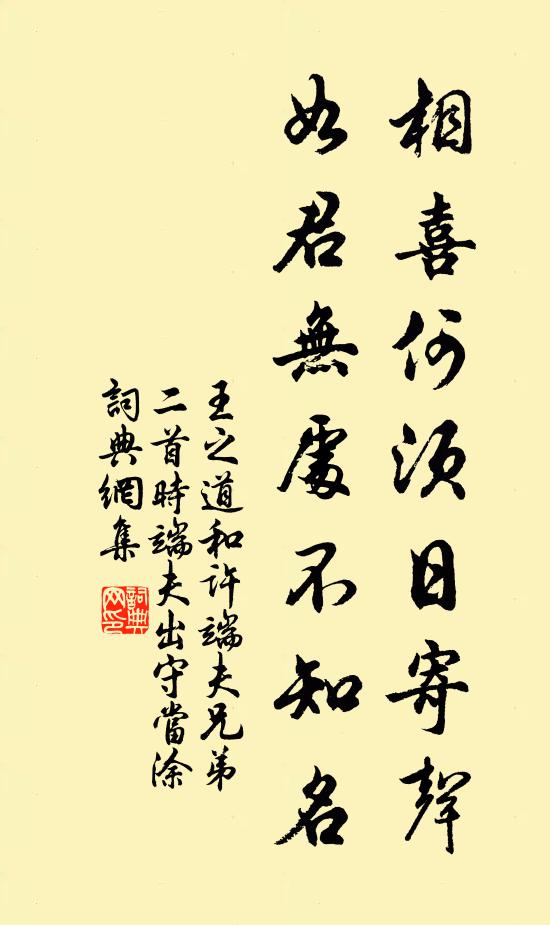 相喜何須日寄聲
如君無處不知名
王之道和許端夫兄弟
二首時端夫出守當涂
詞典網集
詞典網印